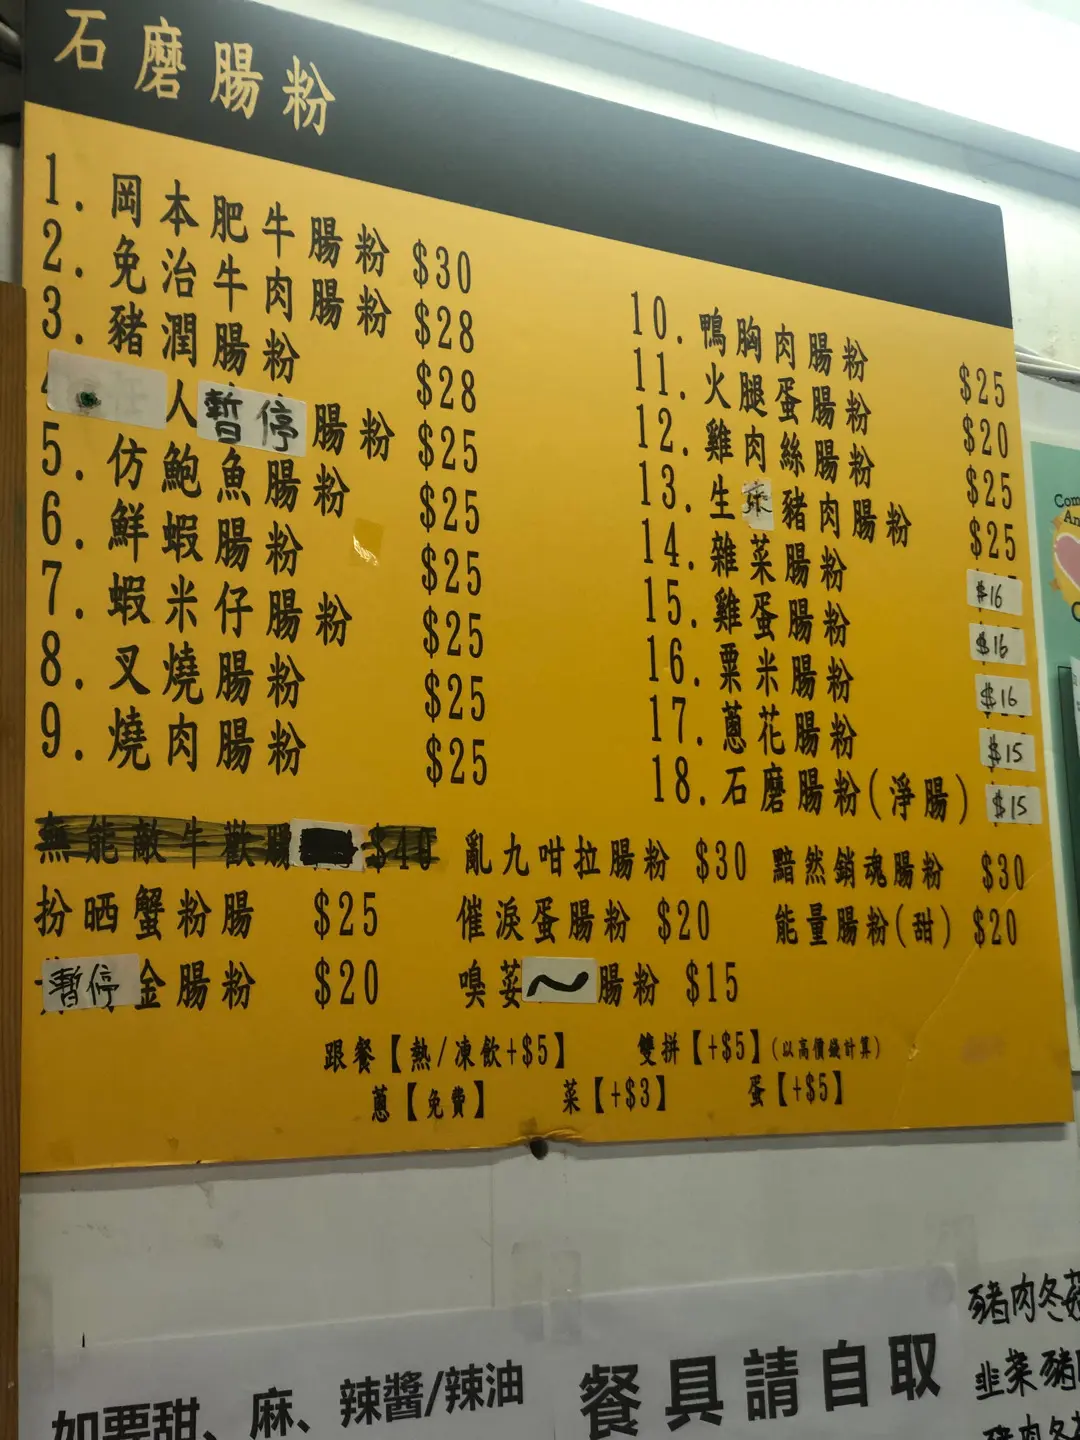 石磨腸粉
1. 岡本肥牛腸粉 $30
2. 免治牛肉腸粉 $28
3. 豬潤腸粉 $28
人 暫停 腸粉 $25
5. 仿鮑魚腸粉 $25
6. 鮮蝦腸粉 $25
7. 蝦米仔腸粉 $25
8. 叉燒腸粉 $25
9. 燒肉腸粉 $25
10. 鴨胸肉腸粉 $25
11. 火腿蛋腸粉 $20
12. 雞肉絲腸粉 $25
13. 生菜豬肉腸粉 $25
14. 雜菜腸粉 $16
15. 雞蛋腸粉 $16
16. 粟米腸粉 $16
17. 蔥花腸粉 $15
18. 石磨腸粉(淨腸) $15
無能敵牛歡腸 $40 亂九咁拉腸粉 $30 黯然銷魂腸粉 $30
扮晒蟹粉腸 $25 催淚蛋腸粉 $20 能量腸粉(甜) $20
暫停 金腸粉 $20 嗅荽~腸粉 $15
跟餐【熱/凍飲+$5】 雙拼【+$5】(以高價錢計算)
蔥【免費】 菜【+$3】 蛋【+$5】
如要甜、麻、辣醬/辣油
餐具請自取
豬肉冬菇
韭菜豬
豬肉冬
Com
An